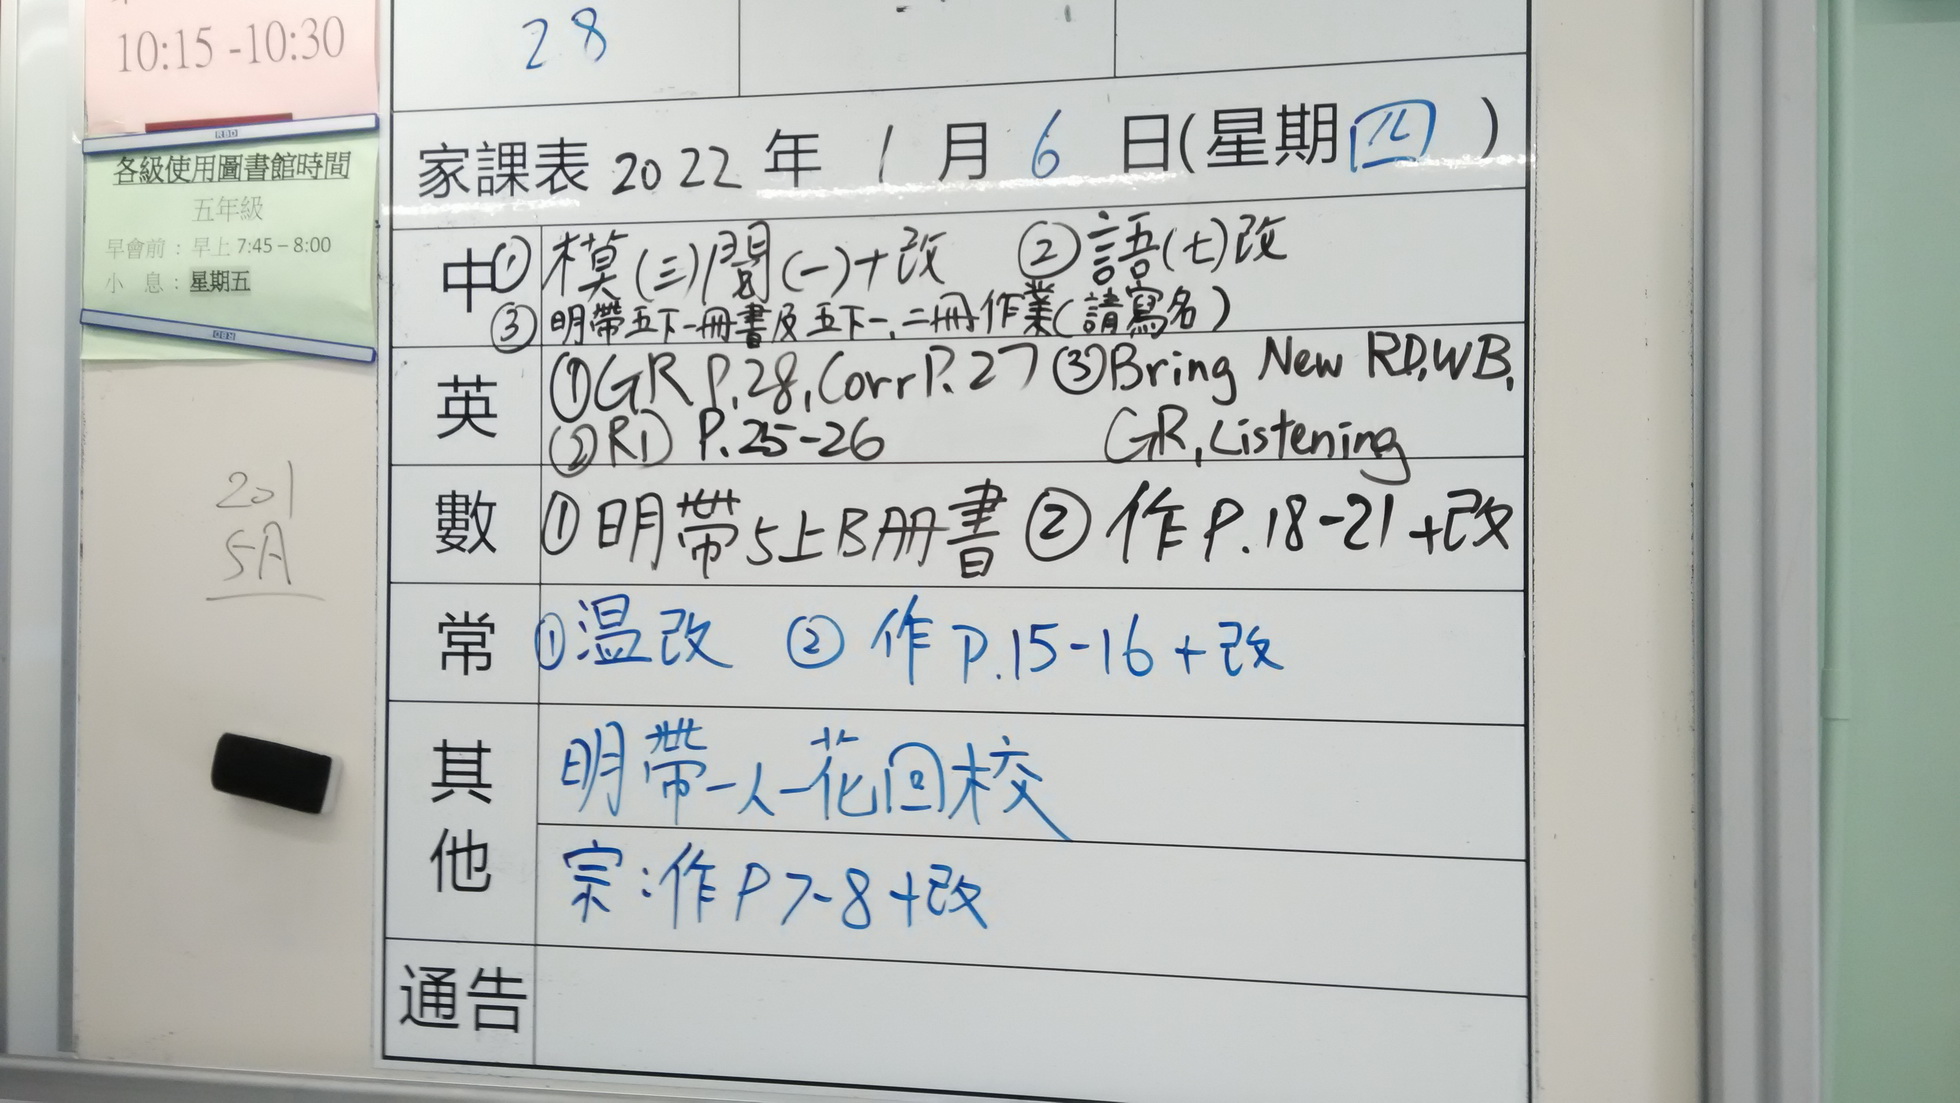 10:15 -10:30
各級使用圖書館時間
五年級
早會前：早上 7:45 – 8:00
小 息：星期五
201
5A
28
家課表 2022 年 1 月 6 日(星期四)
中 ① 模(三)閱(一)+改 ② 語(七)改
③ 明帶五下一冊書及五下一,二冊作業(請寫名)
英 ①GR P.28,Corr P.27 ③Bring New RD,WB,
②RD P.25-26 GR,Listening
數 ①明帶5上B册書 ② 作P.18-21+改
常 ①温改 ② 作 P.15-16+改
其他 明帶一人一花回校
宗:作P7-8+改
通告